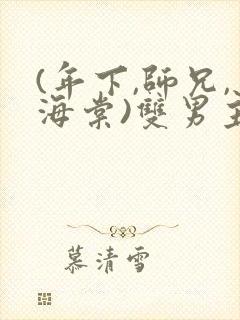 (年下,師兄,
海棠)雙男主
慕清雪